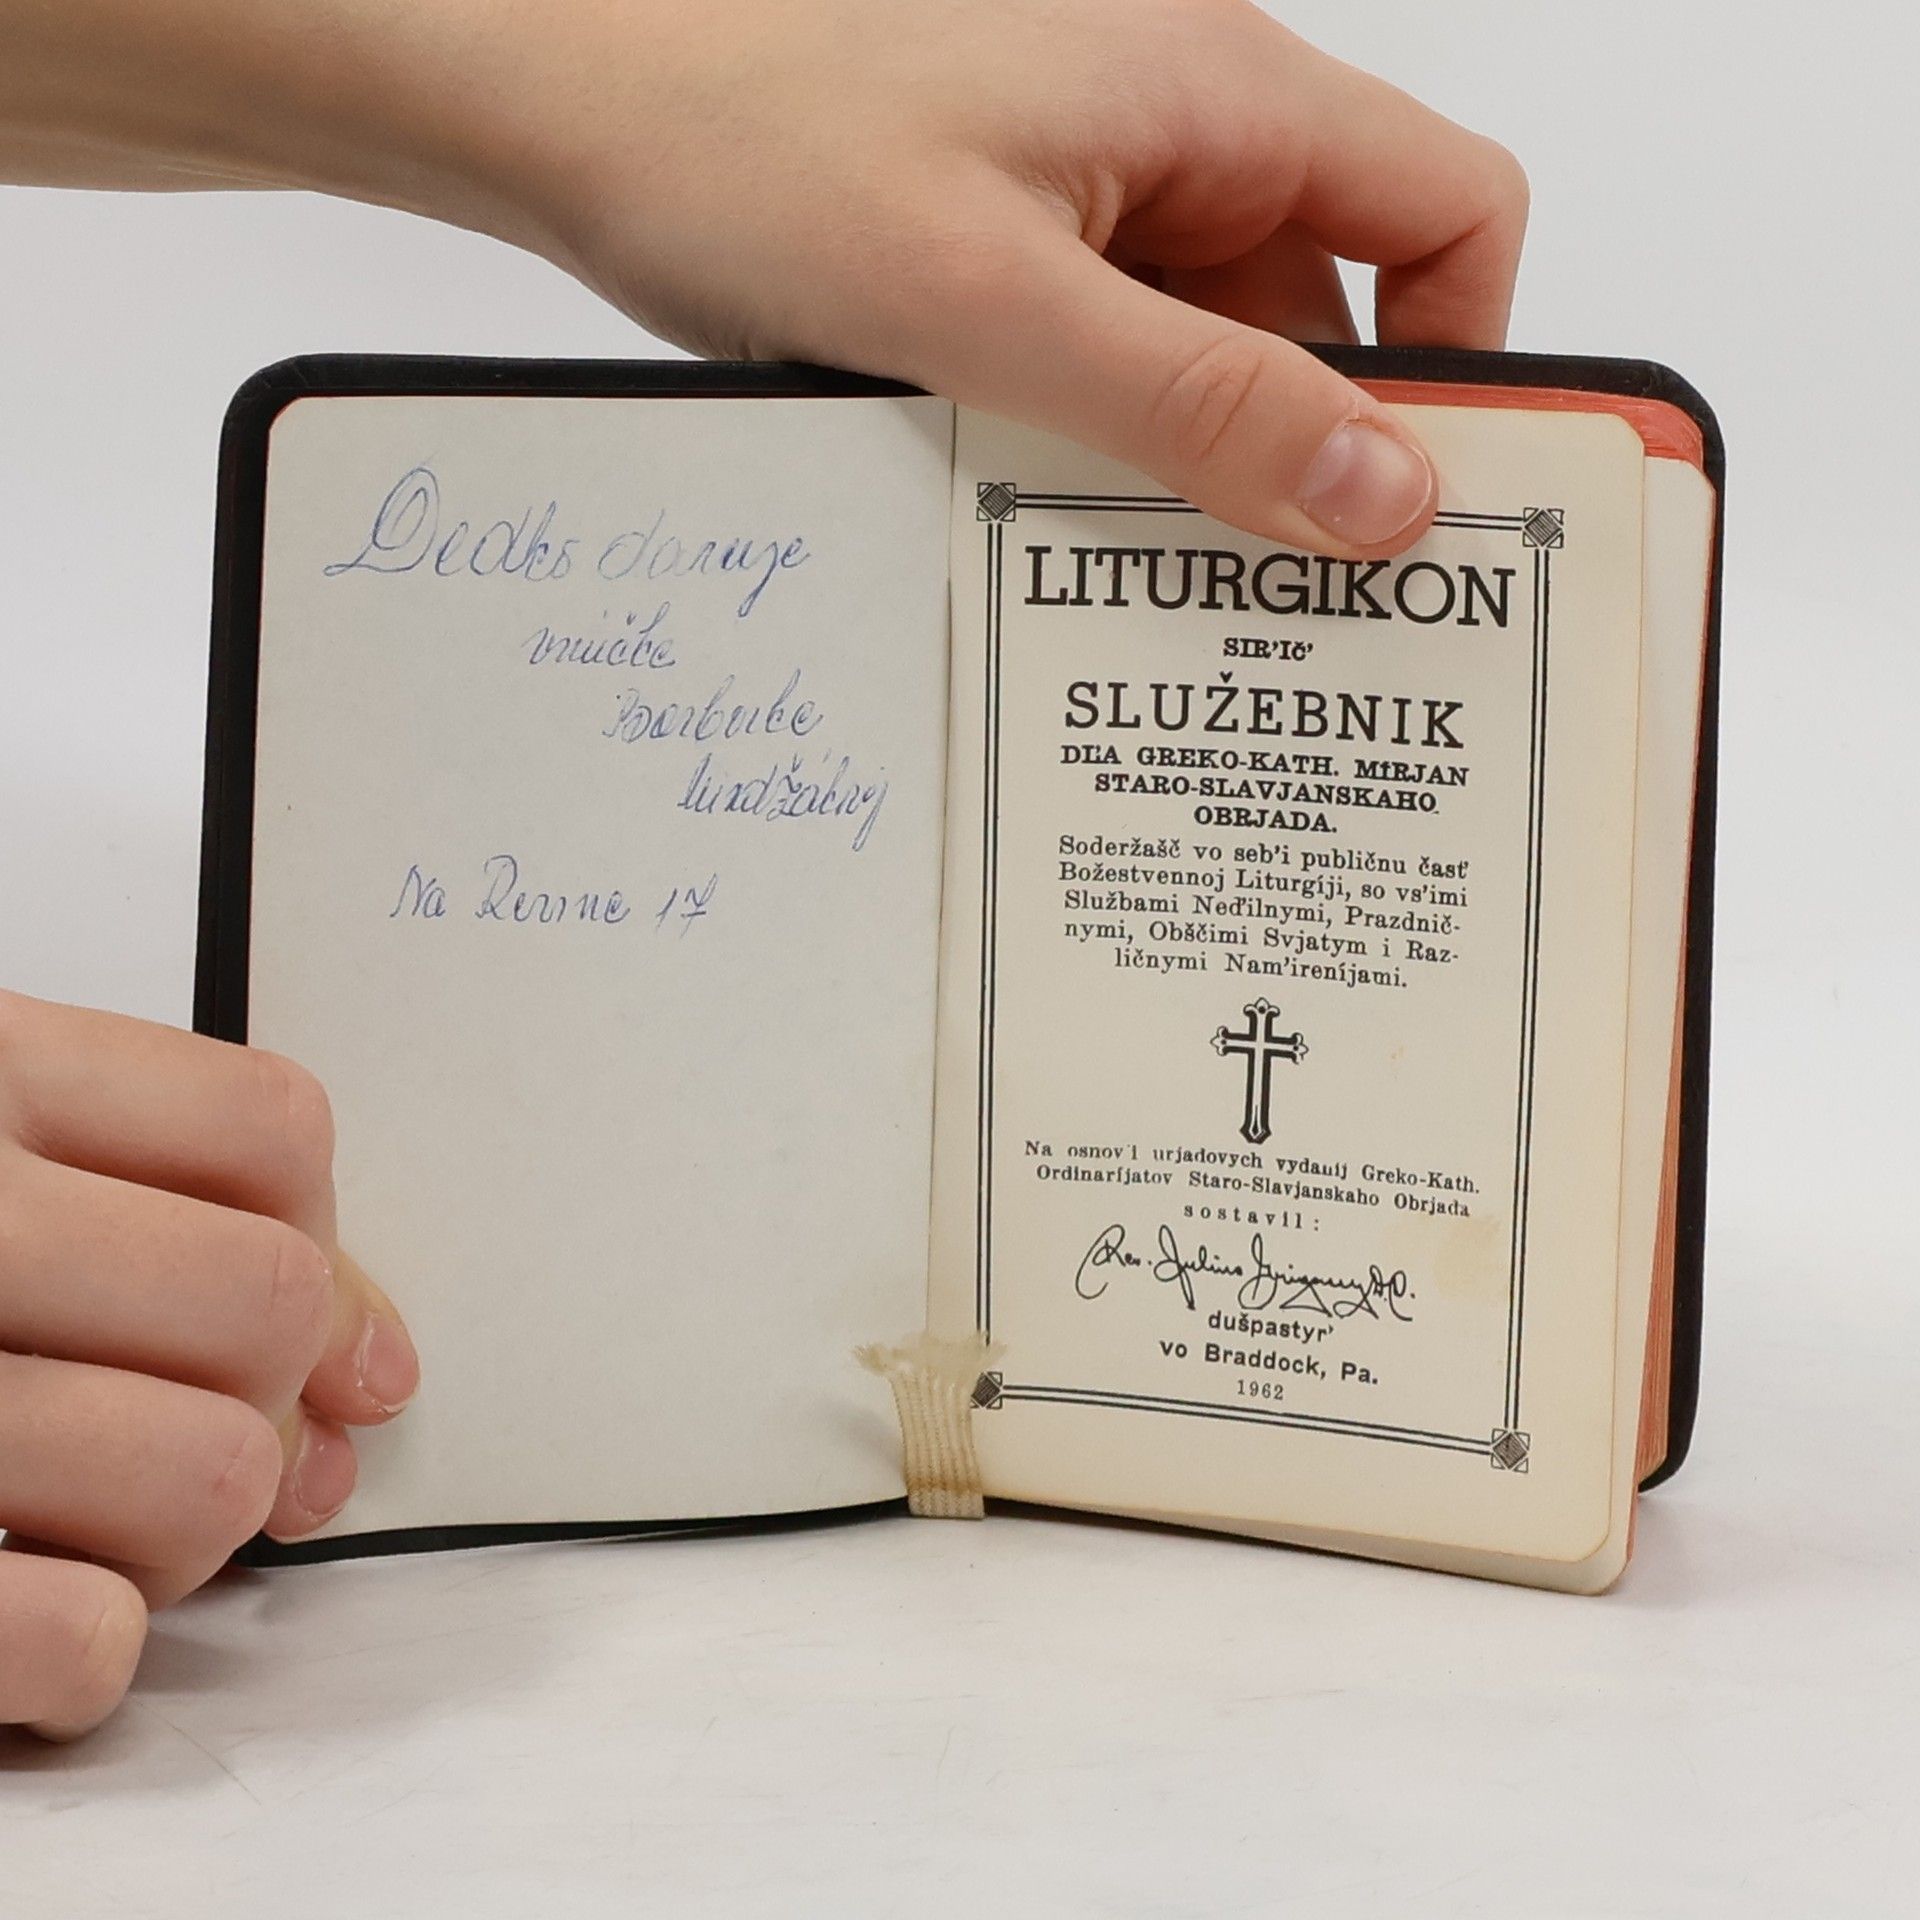 Dedko daruje
vnučke
Barburke
Na Revíne 17
LITURGIKON
SIR’IČ’
SLUŽEBNIK
DĽA GREKO-KATH. MÍRJAN
STARO-SLAVJANSKAHO
OBRJADA.
Soderžašč vo seb’i publičnu časť
Božestvennoj Liturgíji, so vs’imi
Službami Neďilnymi, Prazdnič-
nymi, Obščimi Svjatym i Raz-
ličnymi Nam’ireníjami.
Na osnov’i urjadovych vydanij Greko-Kath.
Ordinaríjatov Staro-Slavjanskaho Obrjada
sostavil:
Rev. Julius Grigassy D.D.
dušpastyr’
vo Braddock, Pa.
1962